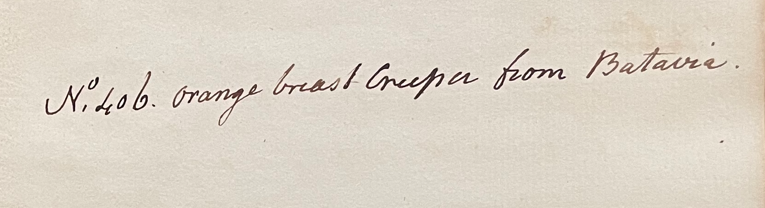 No. 406. orange breast Creeper from Batavia.